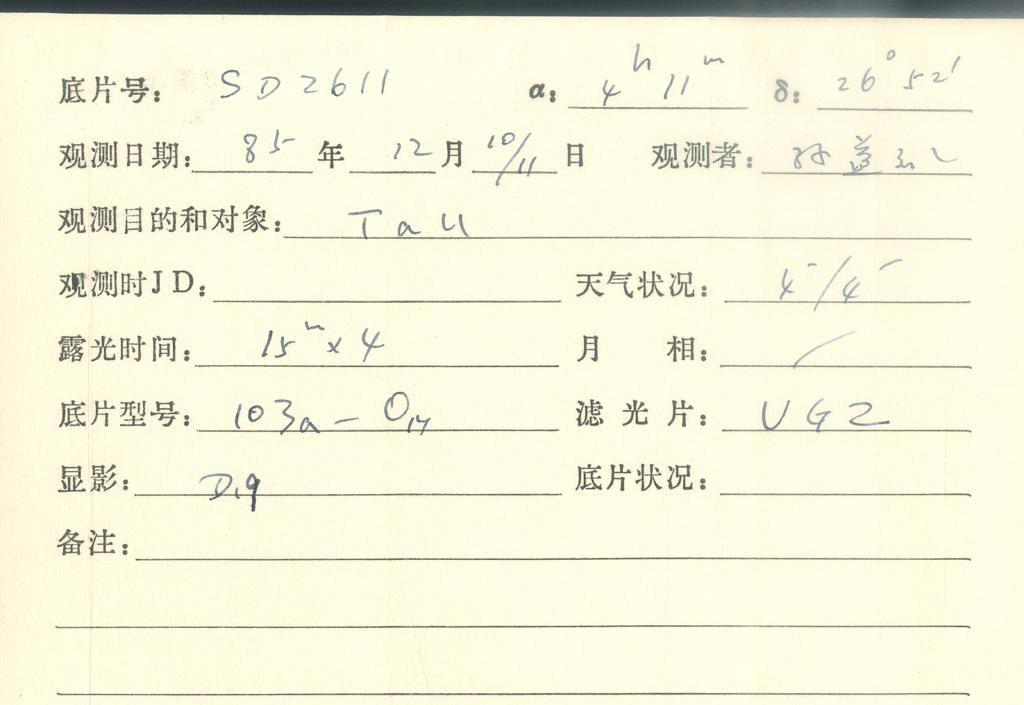 底片号： SD2611 α： 4ʰ 11ᵐ δ： 26° 52′
观测日期： 85 年 12 月 10/11 日 观测者：
观测目的和对象： Tau
观测时JD： 天气状况： 4⁻/4⁻
露光时间： 15ᵐ×4 月 相： /
底片型号： 103a-O 滤光片： UG2
显影： D19 底片状况：
备注：